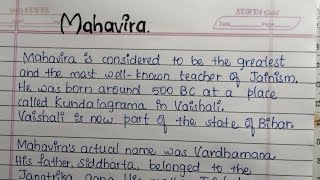 SURYA Gold
Date
Page
Mahavira.
Mahavira is considered to be the greatest
and the most well-known teacher of Jainism.
He was born around 500 BC at a place
called Kundalagrama in Vaishali.
Vaishali is now part of the state of Bihar.
Mahavira's actual name was Vardhamana.
His father, siddharta, belonged to the
gana His